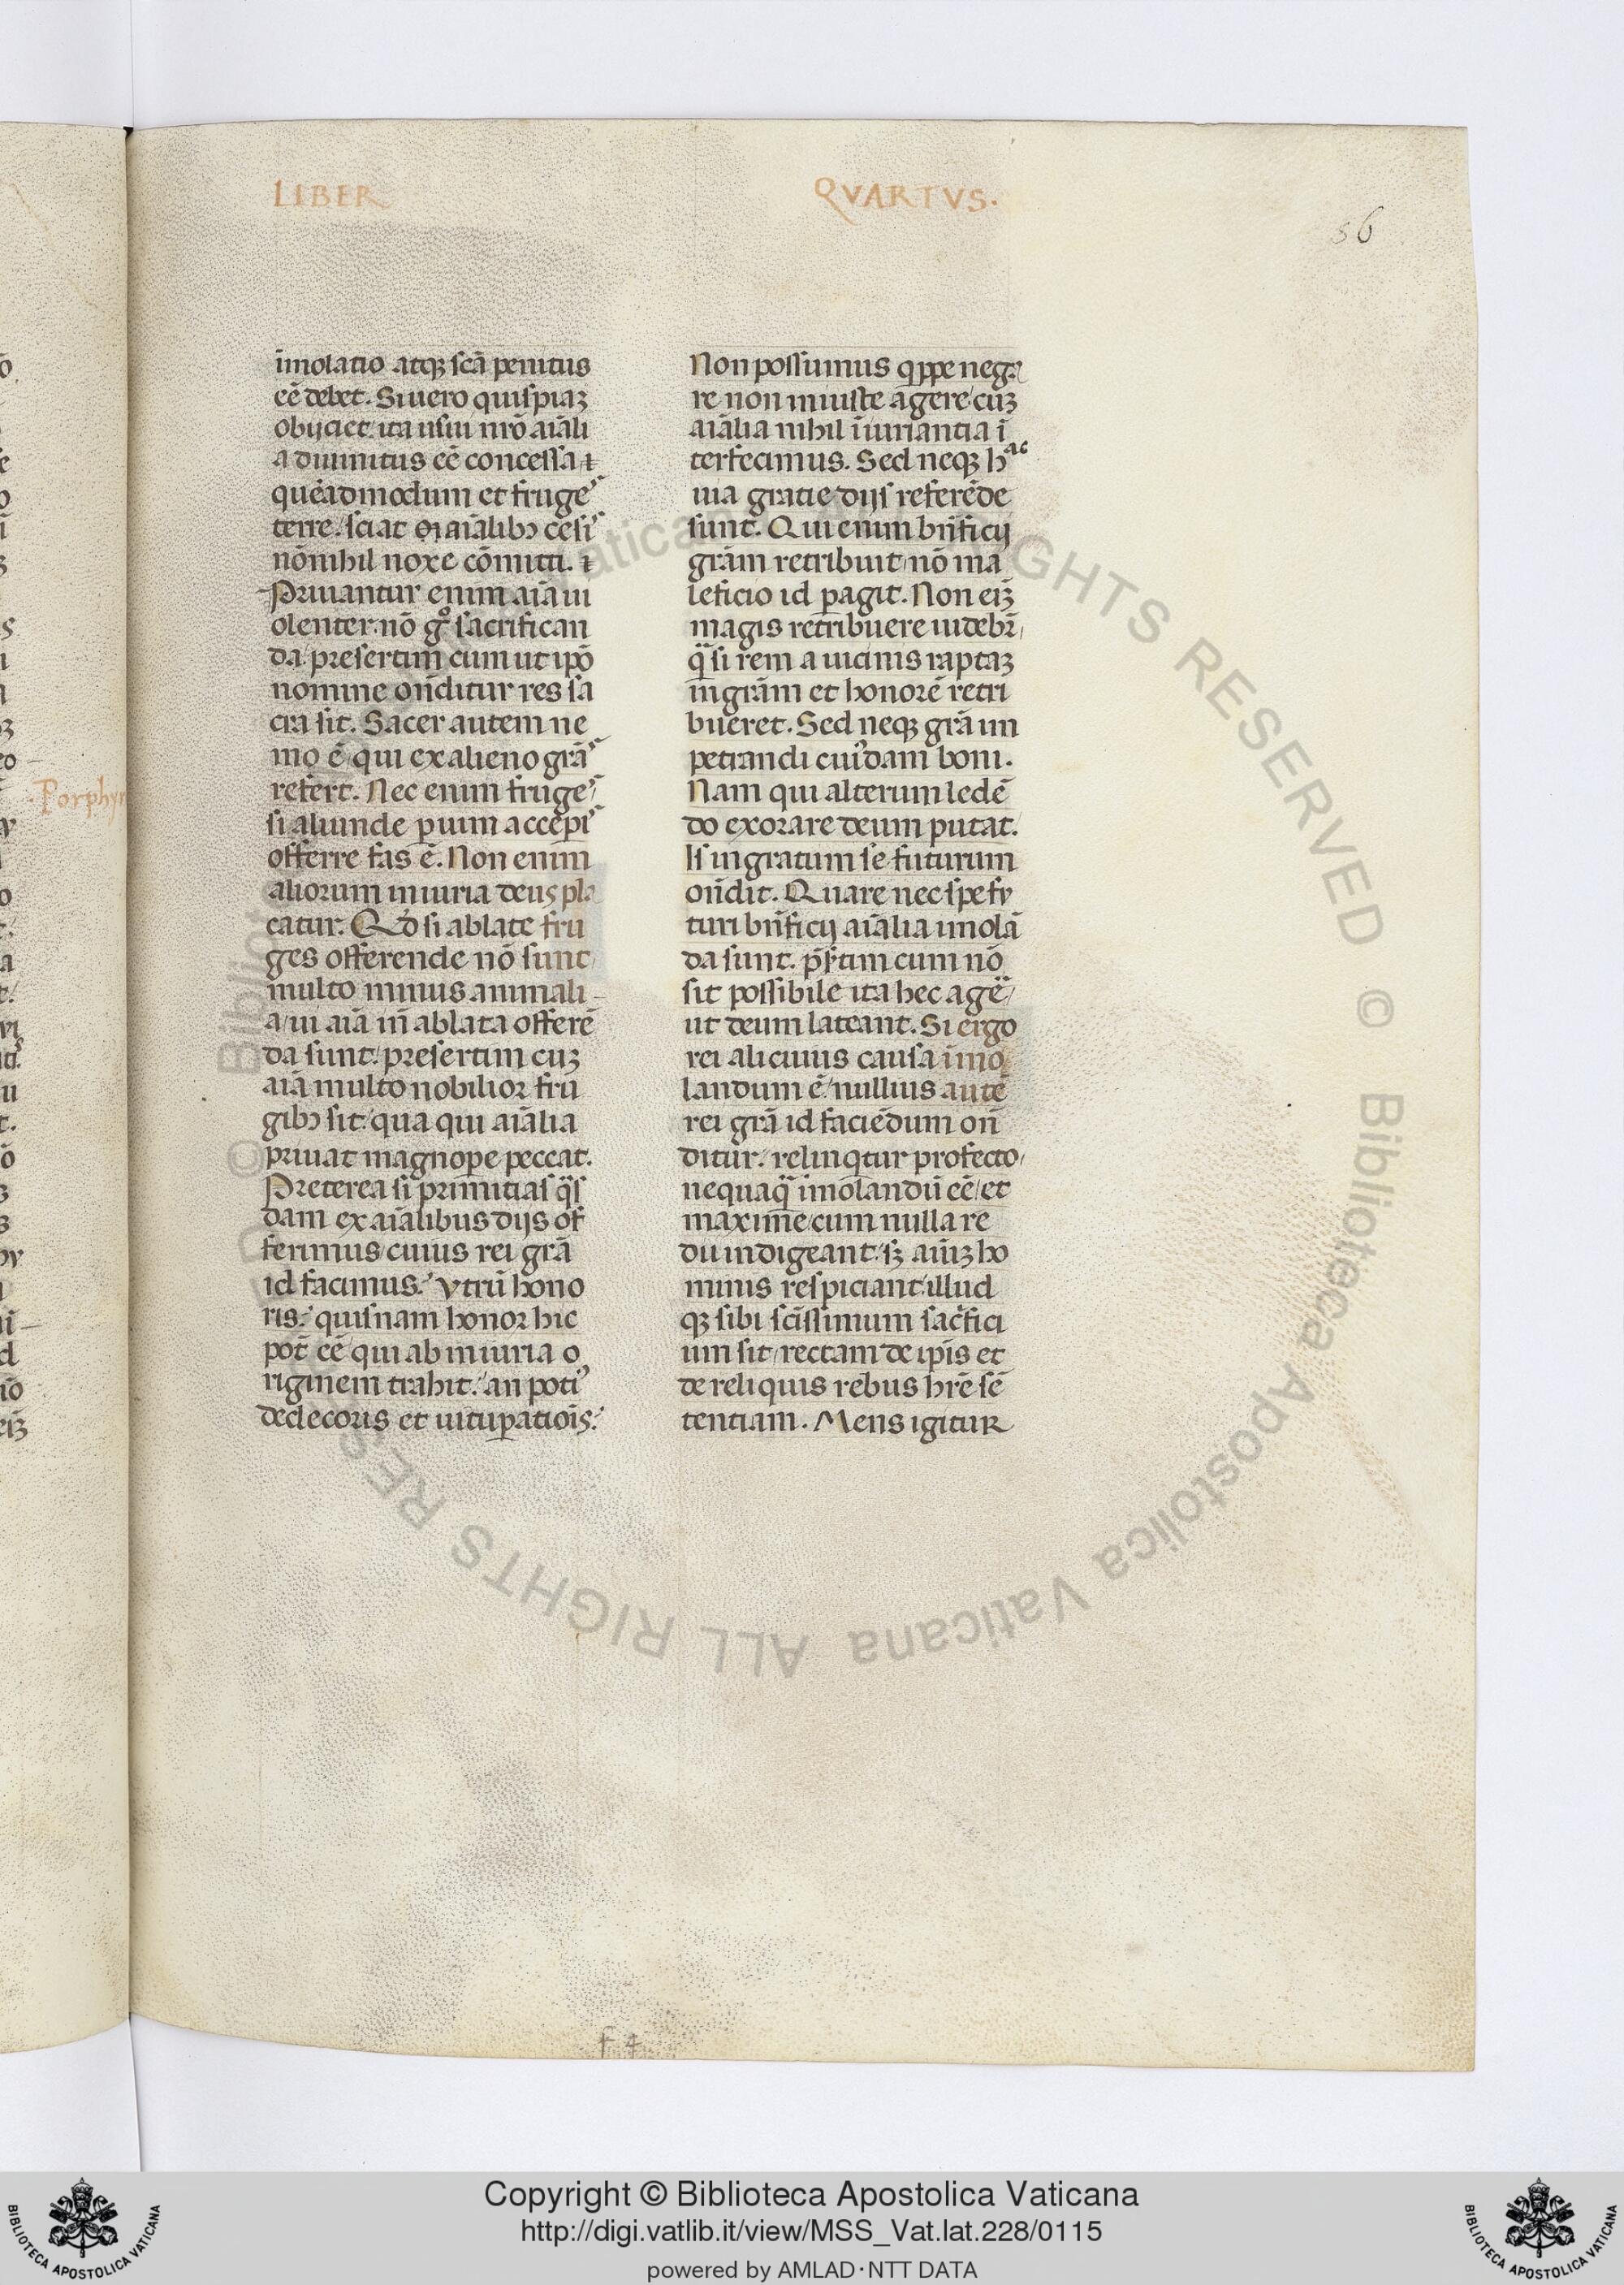 LIBER QVARTVS.
56
īmolatio atqꝫ scā penitus
eē debet. Si uero quispiaꝫ
obijciet: ita usui nr̄o aīali
a diuinitus eē concessa
quēadmodum et fruge᷒
terre / sciat ꝙ aīalibꝫ cesi᷒
nōnihil noxe cōmitti.
Priuantur enim aīa ui
olenter: nō gͦ sacrifican
da: presertim cum ut ipō
nomine on̄ditur res sa
cra sit. Sacer autem ne
mo ē qui ex alieno grā᷒
refert. Nec enim fruge᷒
si aliunde ꝑuim accepi᷒
offerre fas ē. Non enim
aliorum iniuria deus pla
catur. Qđ si ablate fru
ges offerende nō sunt
multo minus animali
a / ui aīa in̄ ablata offerē
da sunt: presertim cuꝫ
aīa multo nobilior fru
gibꝫ sit: qua qui aīalia
priuat magnopere peccat.
Preterea si primitias qͣs
dam ex aīalibus dijs of
ferimus / cuius rei grā
id facimus? Vtrū hono
ris? quisnam honor hic
pot̄ eē qui ab iniuria o
riginem trahit? an poti᷒
dedecoris et uituꝑatiōis?
Non possumus qppe nega
re non iniuste agere / cuꝫ
aīalia nihil īiuriantia ī
terfecimus. Sed neqꝫ hac
uia gratie dijs referēde
sunt. Qui enim bn̄ficij
grām retribuit / nō ma
leficio id ꝑagit. Non eīꝫ
magis retribuere uidebr̄ /
qͣ si rem a uicinis raptaꝫ
in grām et honorē retri
bueret. Sed neqꝫ grā im
petrandi cuiusdam boni.
Nam qui alterum ledē
do exorare deum putat.
Is ingratum se futurum
on̄dit. Quare nec spe fu
turi bn̄ficij aīalia imolā
da sunt. p̄sertim cum nō
sit possibile ita hec age᷒ /
ut deum lateant. Si ergo
rei alicuius causa īmo
landum ē / nullius autē
rei grā id faciēdum on̄
ditur: relinqtur profecto /
nequaqͣ imolandū eē / et
maxime cum nulla re
dii indigeant: sꝫ aīuꝫ ho
minis respiciant: illud
qꝫ sibi sc̄issimum sacfici
um sit / rectam de ipīs et
de reliquis rebus hr̄e sē
tentiam. Mens igitur
f 4
Porphyr
Copyright © Biblioteca Apostolica Vaticana
http://digi.vatlib.it/view/MSS_Vat.lat.228/0115
powered by AMLAD·NTT DATA
BIBLIOTECA APOSTOLICA VATICANA
BIBLIOTECA APOSTOLICA VATICANA
© Biblioteca Apostolica Vaticana ALL RIGHTS RESERVED © Biblioteca Apostolica Vaticana ALL RIGHTS RESERVED